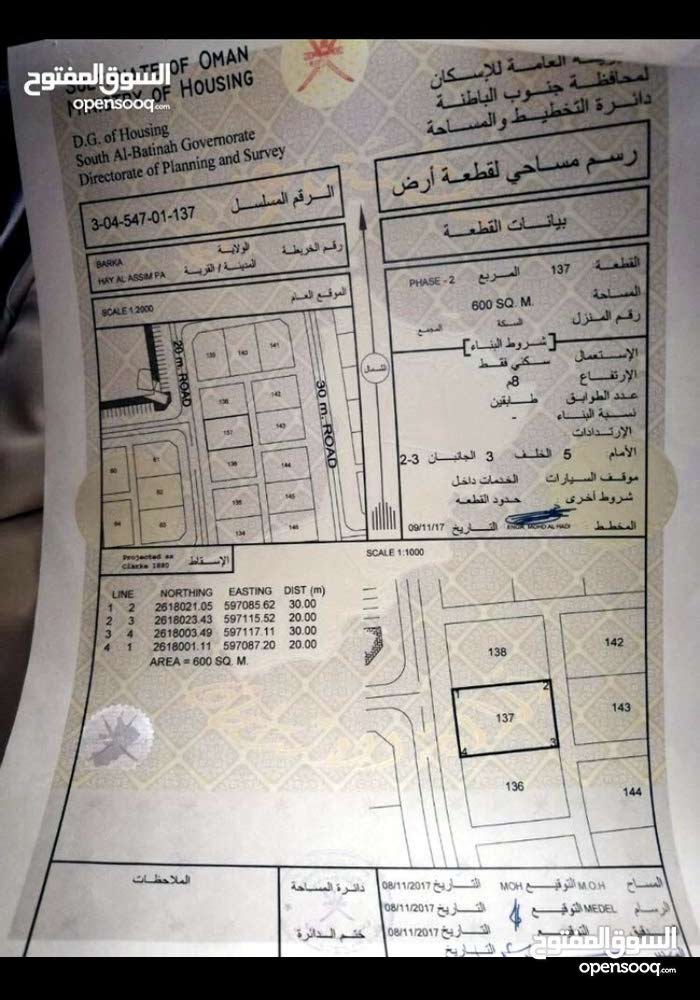 السوق المفتوح
opensooq.com
SULTANATE OF OMAN
MINISTRY OF HOUSING
D.G. of Housing
South Al-Batinah Governorate
Directorate of Planning and Survey
العامة للإسكان
لمحافظة جنوب الباطنة
دائرة التخطيط والمساحة
رسم مساحي لقطعة أرض
بيانات القطعة
الرقم المسلسل 3-04-547-01-137
رقم الخريطة الولاية BARKA
المدينة / القرية HAY AL ASSIM PA
الموقع العام SCALE 1:2000
القطعة 137 المربع PHASE - 2
المساحة 600 SQ. M.
رقم المنزل السكة المجمع
شروط البناء
الإستعمال سكني فقط
الإرتفاع 8م
عدد الطوابق طابقين
نسبة البناء -
الإرتدادات
الأمام 5 الخلف 3 الجانبان 2-3
موقف السيارات الخدمات داخل
شروط أخرى حدود القطعه
المخطط ENGR. MOHD AL HADI التاريخ 09/11/17
الشمال
20 m. ROAD
30 m. ROAD
139 140 141
138 142
137 143
136 144
145
134 146
60 61
62
64 63
Projected as
Clarke 1880
الإسقاط
SCALE 1:1000
LINE NORTHING EASTING DIST (m)
1 2 2618021.05 597085.62 30.00
2 3 2618023.43 597115.52 20.00
3 4 2618003.49 597117.11 30.00
4 1 2618001.11 597087.20 20.00
AREA = 600 SQ. M.
138
142
1 2
137
143
4 3
136
144
الملاحظات
دائرة المساحة
ختم الدائرة
المساح M.O.H التوقيع MOH التاريخ 08/11/2017
الرسام MEDEL التوقيع التاريخ 08/11/2017
التوقيع التاريخ 08/11/2017
التاريخ
السوق المفتوح
opensooq.com